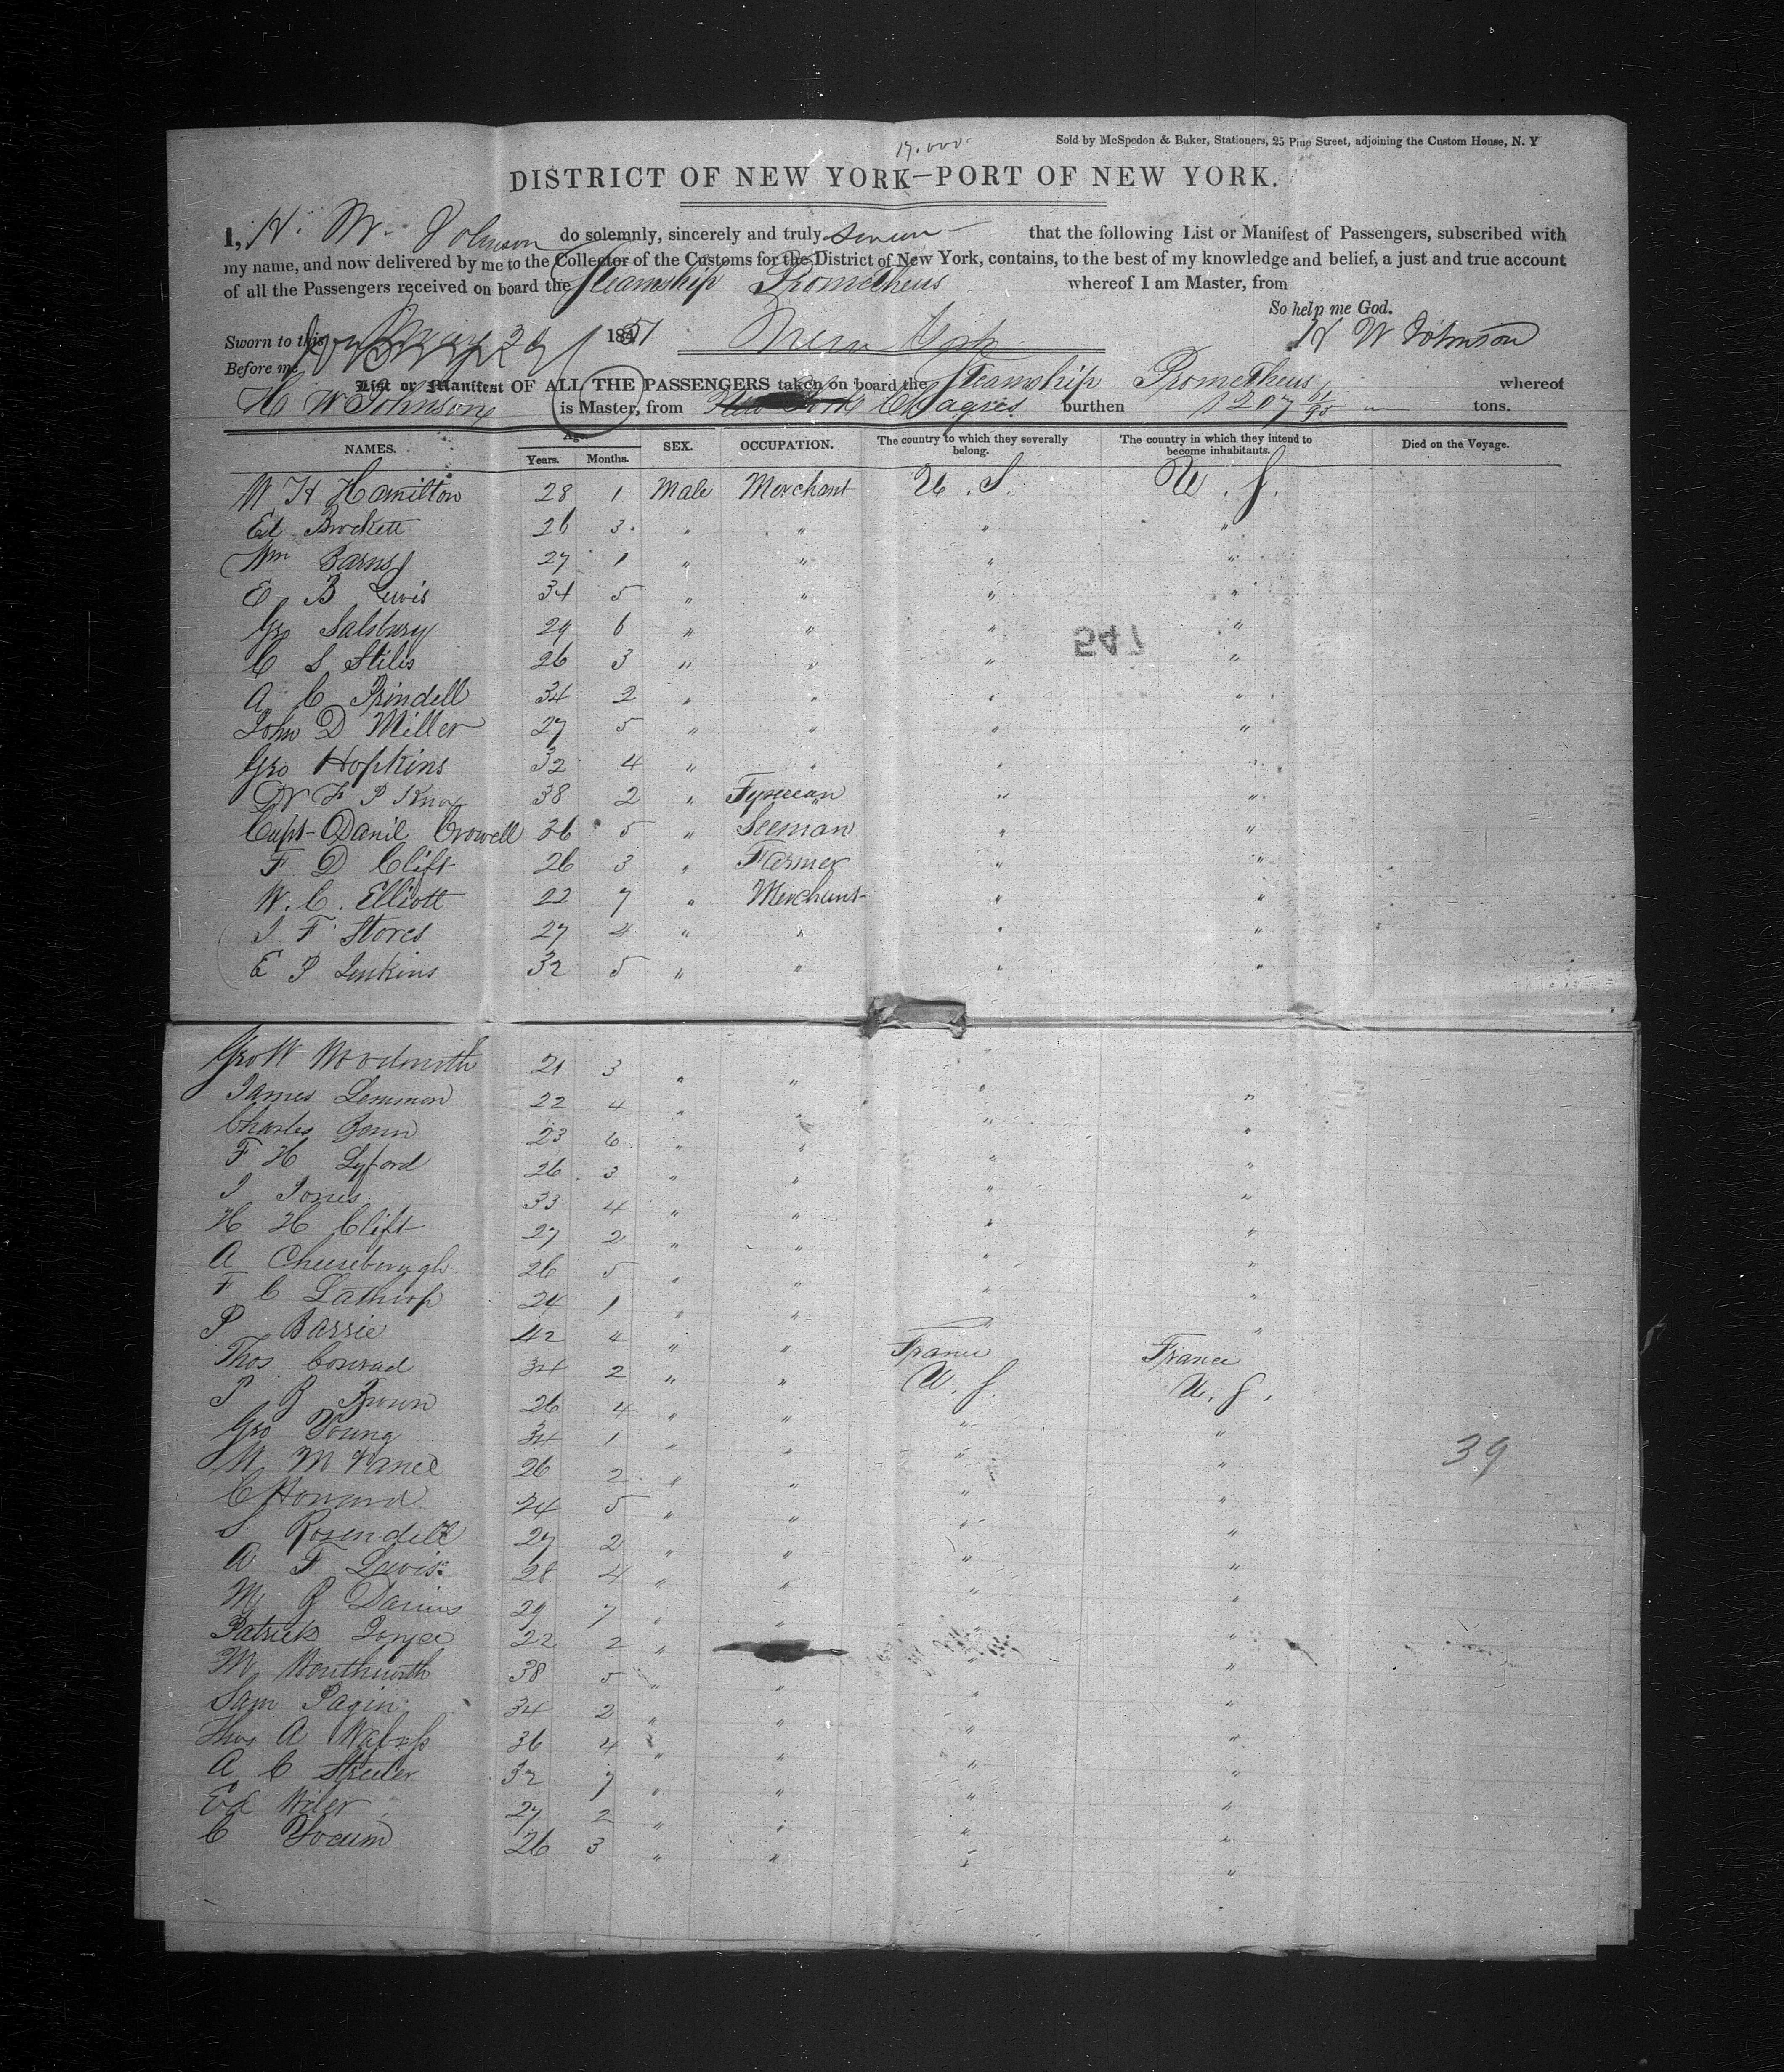 17.000
Sold by McSpedon & Baker, Stationers, 25 Pine Street, adjoining the Custom House, N. Y
DISTRICT OF NEW YORK—PORT OF NEW YORK.
I, H. W. Johnson do solemnly, sincerely and truly swear that the following List or Manifest of Passengers, subscribed with
my name, and now delivered by me to the Collector of the Customs for the District of New York, contains, to the best of my knowledge and belief, a just and true account
of all the Passengers received on board the Steamship Prometheus whereof I am Master, from
So help me God.
Sworn to this 29 1851 New York H W Johnson
Before me
List or Manifest OF ALL THE PASSENGERS taken on board the Steamship Prometheus whereof
H W Johnson is Master, from Chagres burthen 1207 61/95 tons.
NAMES. Age. Years. Months. SEX. OCCUPATION. The country to which they severally belong. The country in which they intend to become inhabitants. Died on the Voyage.
W H Hamilton 28 1 Male Merchant U. S. U. S.
Ed Brockett 26 3 " " " "
Wm Barns 27 1 " " " "
E B Lewis 34 5 " " " "
Geo Salsbury 29 6 " " " "
C S Stiles 26 3 " " " "
547
A C Prindell 34 2 " " " "
John D Miller 27 5 " " " "
Geo Hopkins 32 4 " " " "
W F P Knox 38 2 " " "
Capt Danil Crowell 36 5 " Seeman " "
F D Clift 26 3 " Farmer " "
W. C. Elliott 22 7 " Merchant " "
J F Stores 27 4 " " " "
E P Jenkins 32 5 " " " "
Geo W Woodworth 21 3 " " "
James Lemmon 22 4 " " " "
Charles 23 6 " " " "
F H Lyford 26 3 " " " "
J Jones 33 4 " " " "
H H Clift 27 2 " " " "
A Cheesebrough 26 5 " " " "
F C Lathrop 24 1 " " " "
P Barrie 42 4 " " France France
Thos Conrad 34 2 " " U. S. U. S.
P B Brown 26 4 " " " "
Geo Young 34 1 " " " "
W M Vance 26 2 " " " "
39
C Howard 24 5 " " " "
S Rosendell 27 2 " " " "
A F Lewis 28 4 " " " "
M B 29 7 " " " "
Patrick Joyce 22 2 " "
M Wentworth 38 5 " " " "
Sam Pagin 34 2 " " " "
Thos A 36 4 " " " "
A C Streeter 32 7 " " " "
Ed Wiler 27 2 " " " "
C Yocum 26 3 " " " "